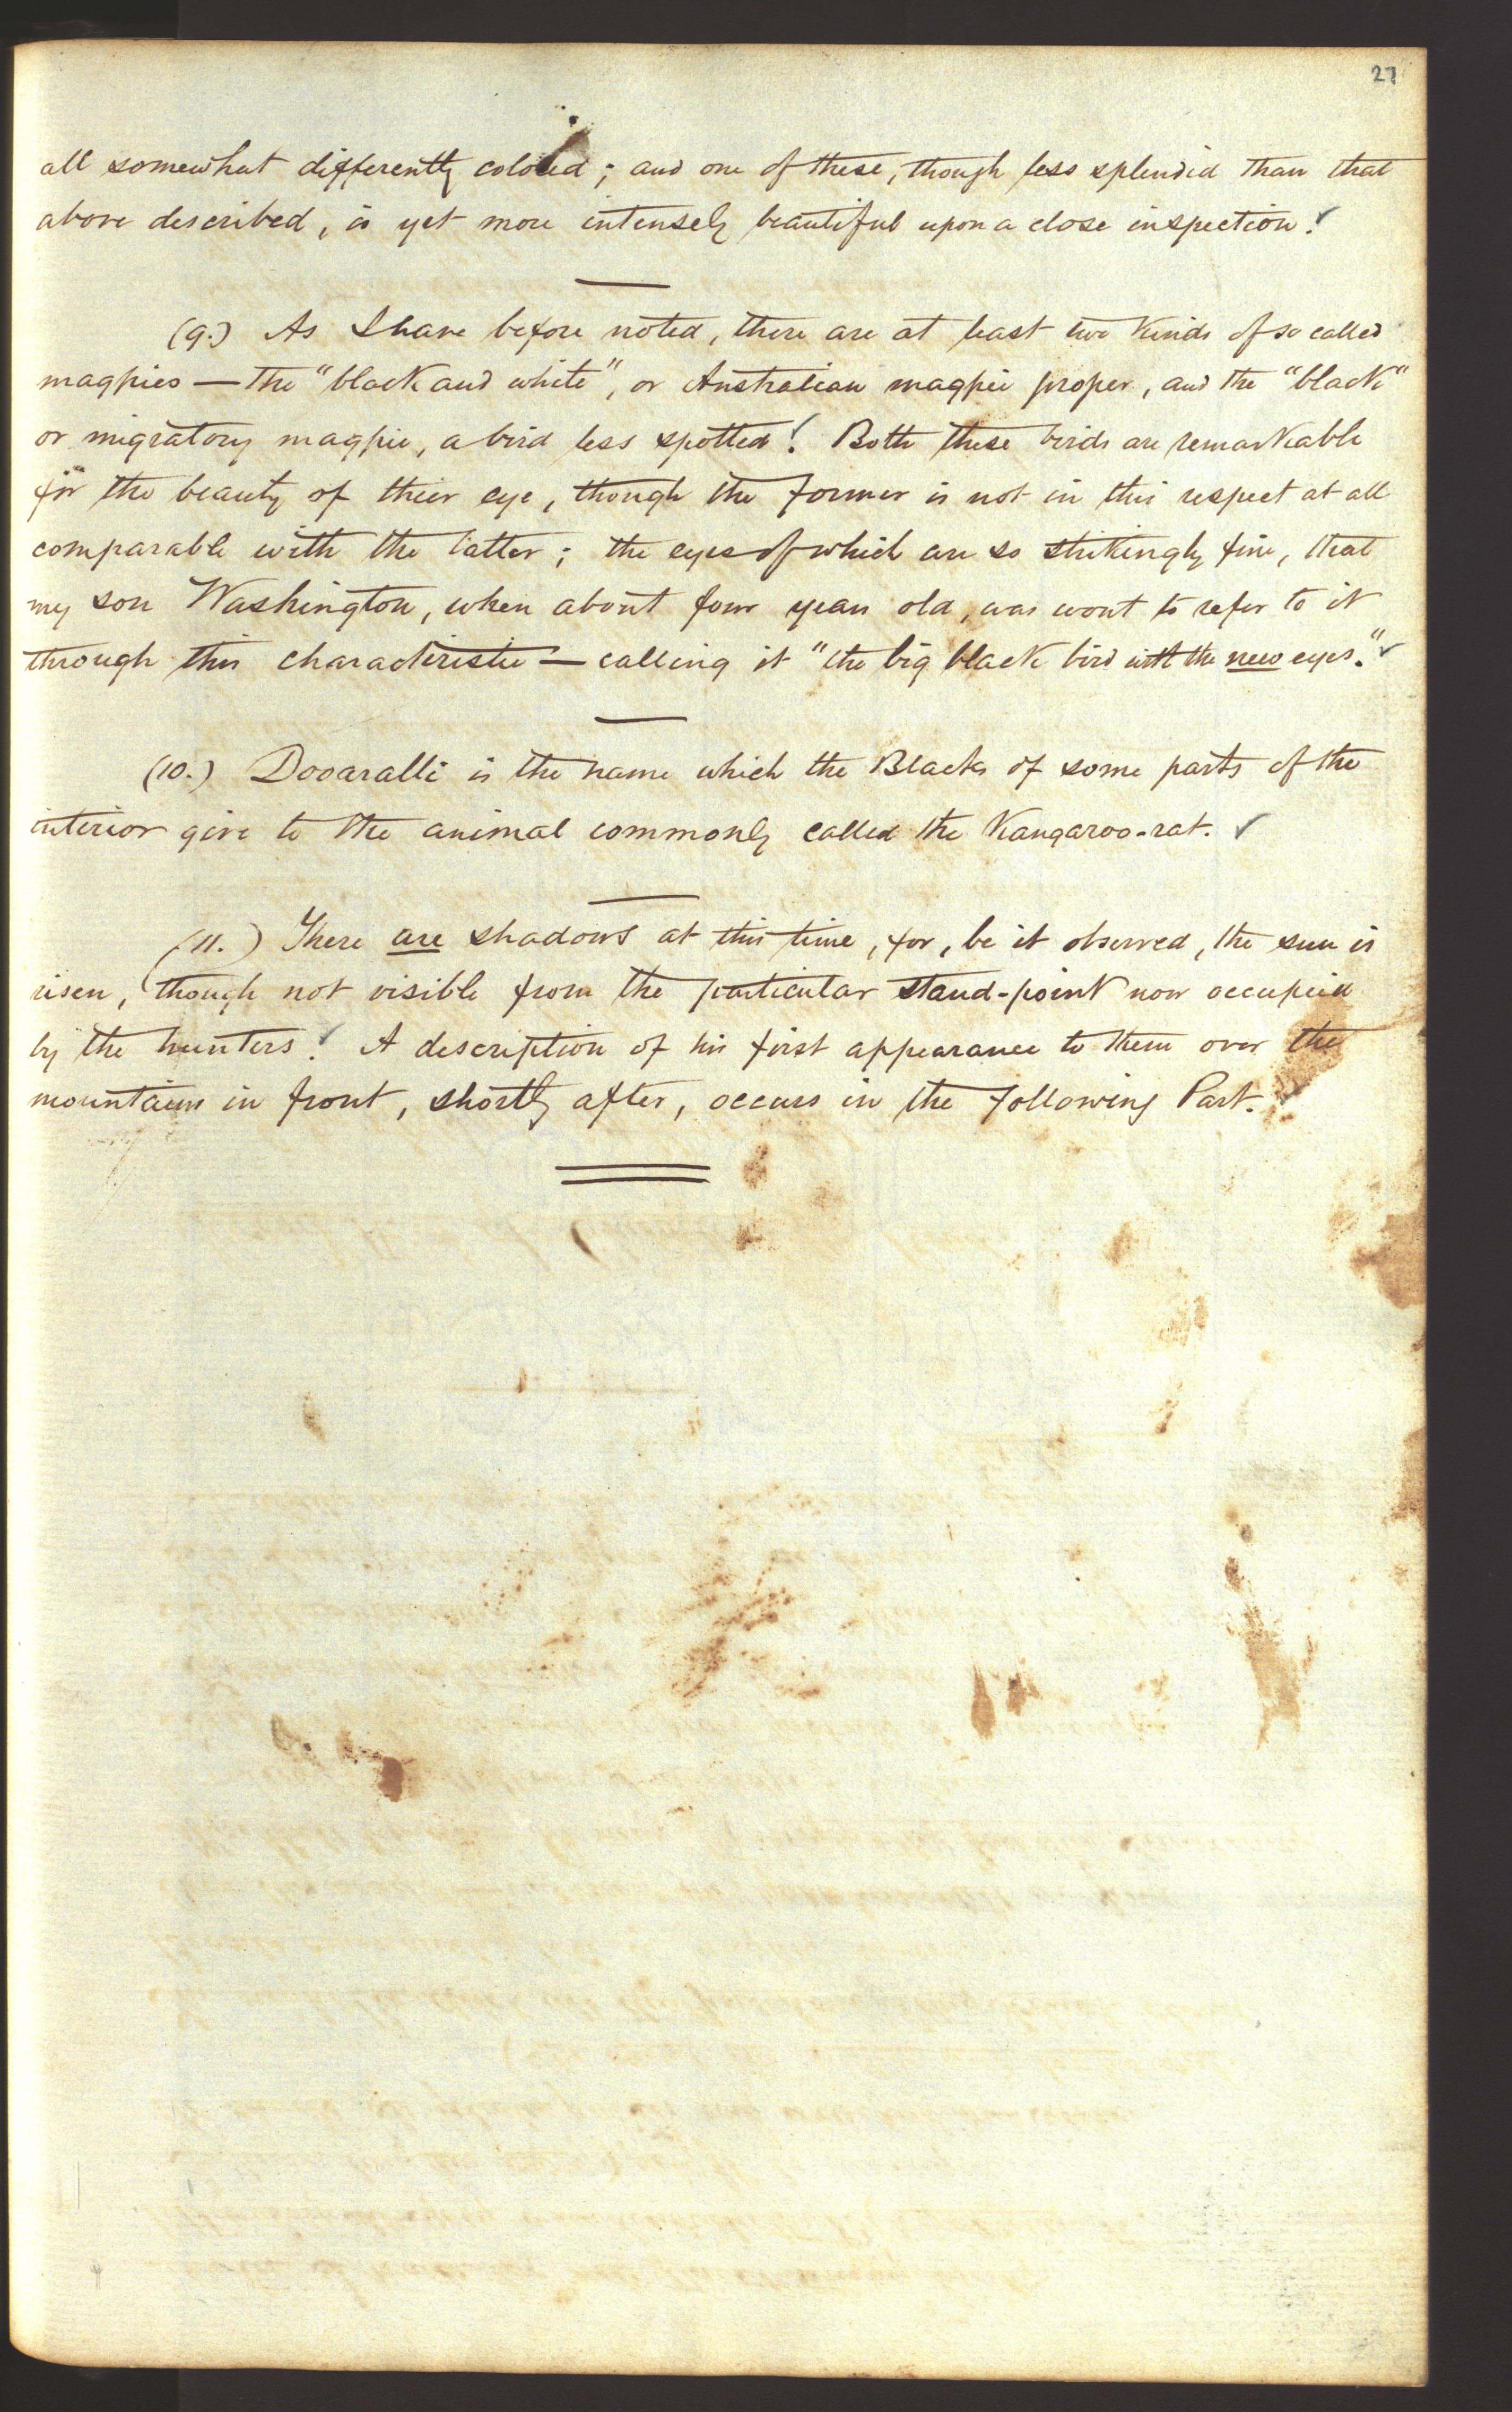 27
all somewhat differently colored; and one of these, though less splendid than that
above described, is yet more intensely beautiful upon a close inspection.
(9.) As I have before noted, there are at least two kinds of so called
magpies — the "black and white", or Australian magpie proper, and the "black"
or migratory magpie, a bird less spotted. Both these birds are remarkable
for the beauty of their eye, though the former is not in this respect at all
comparable with the latter; the eyes of which are so strikingly fine, that
my son Washington, when about four years old, was wont to refer to it
through this characteristic — calling it "the big black bird with the new eyes."
(10.) Dooaralli is the name which the Blacks of some parts of the
interior give to the animal commonly called the Kangaroo-rat.
(11.) There are shadows at this time, for, be it observed, the sun is
risen, though not visible from the particular stand-point now occupied
by the hunters. A description of his first appearance to them over the
mountains in front, shortly after, occurs in the following Part.